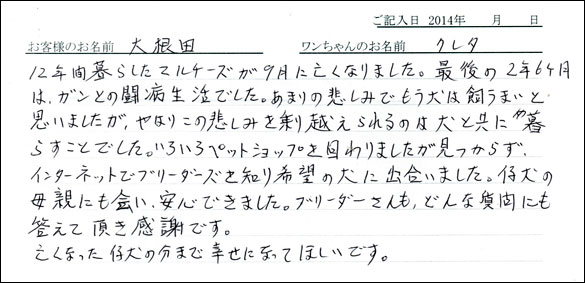 ご記入日 2014年　月　日
お客様のお名前 大根田　ワンちゃんのお名前 クレタ
12年間暮らしたマルチーズが9月に亡くなりました。最後の2年6ケ月
は、ガンとの闘病生活でした。あまりの悲しみでもう犬は飼うまいと
思いましたが、やはりこの悲しみを乗り越えられるのは犬と共に暮
らすことでした。いろいろペットショップを回わりましたが見つからず、
インターネットでブリーダーズを知り希望の犬に出合いました。仔犬の
母親にも会い、安心できました。ブリーダーさんも、どんな質問にも
答えて頂き感謝です。
亡くなった仔犬の分まで幸せになってほしいです。